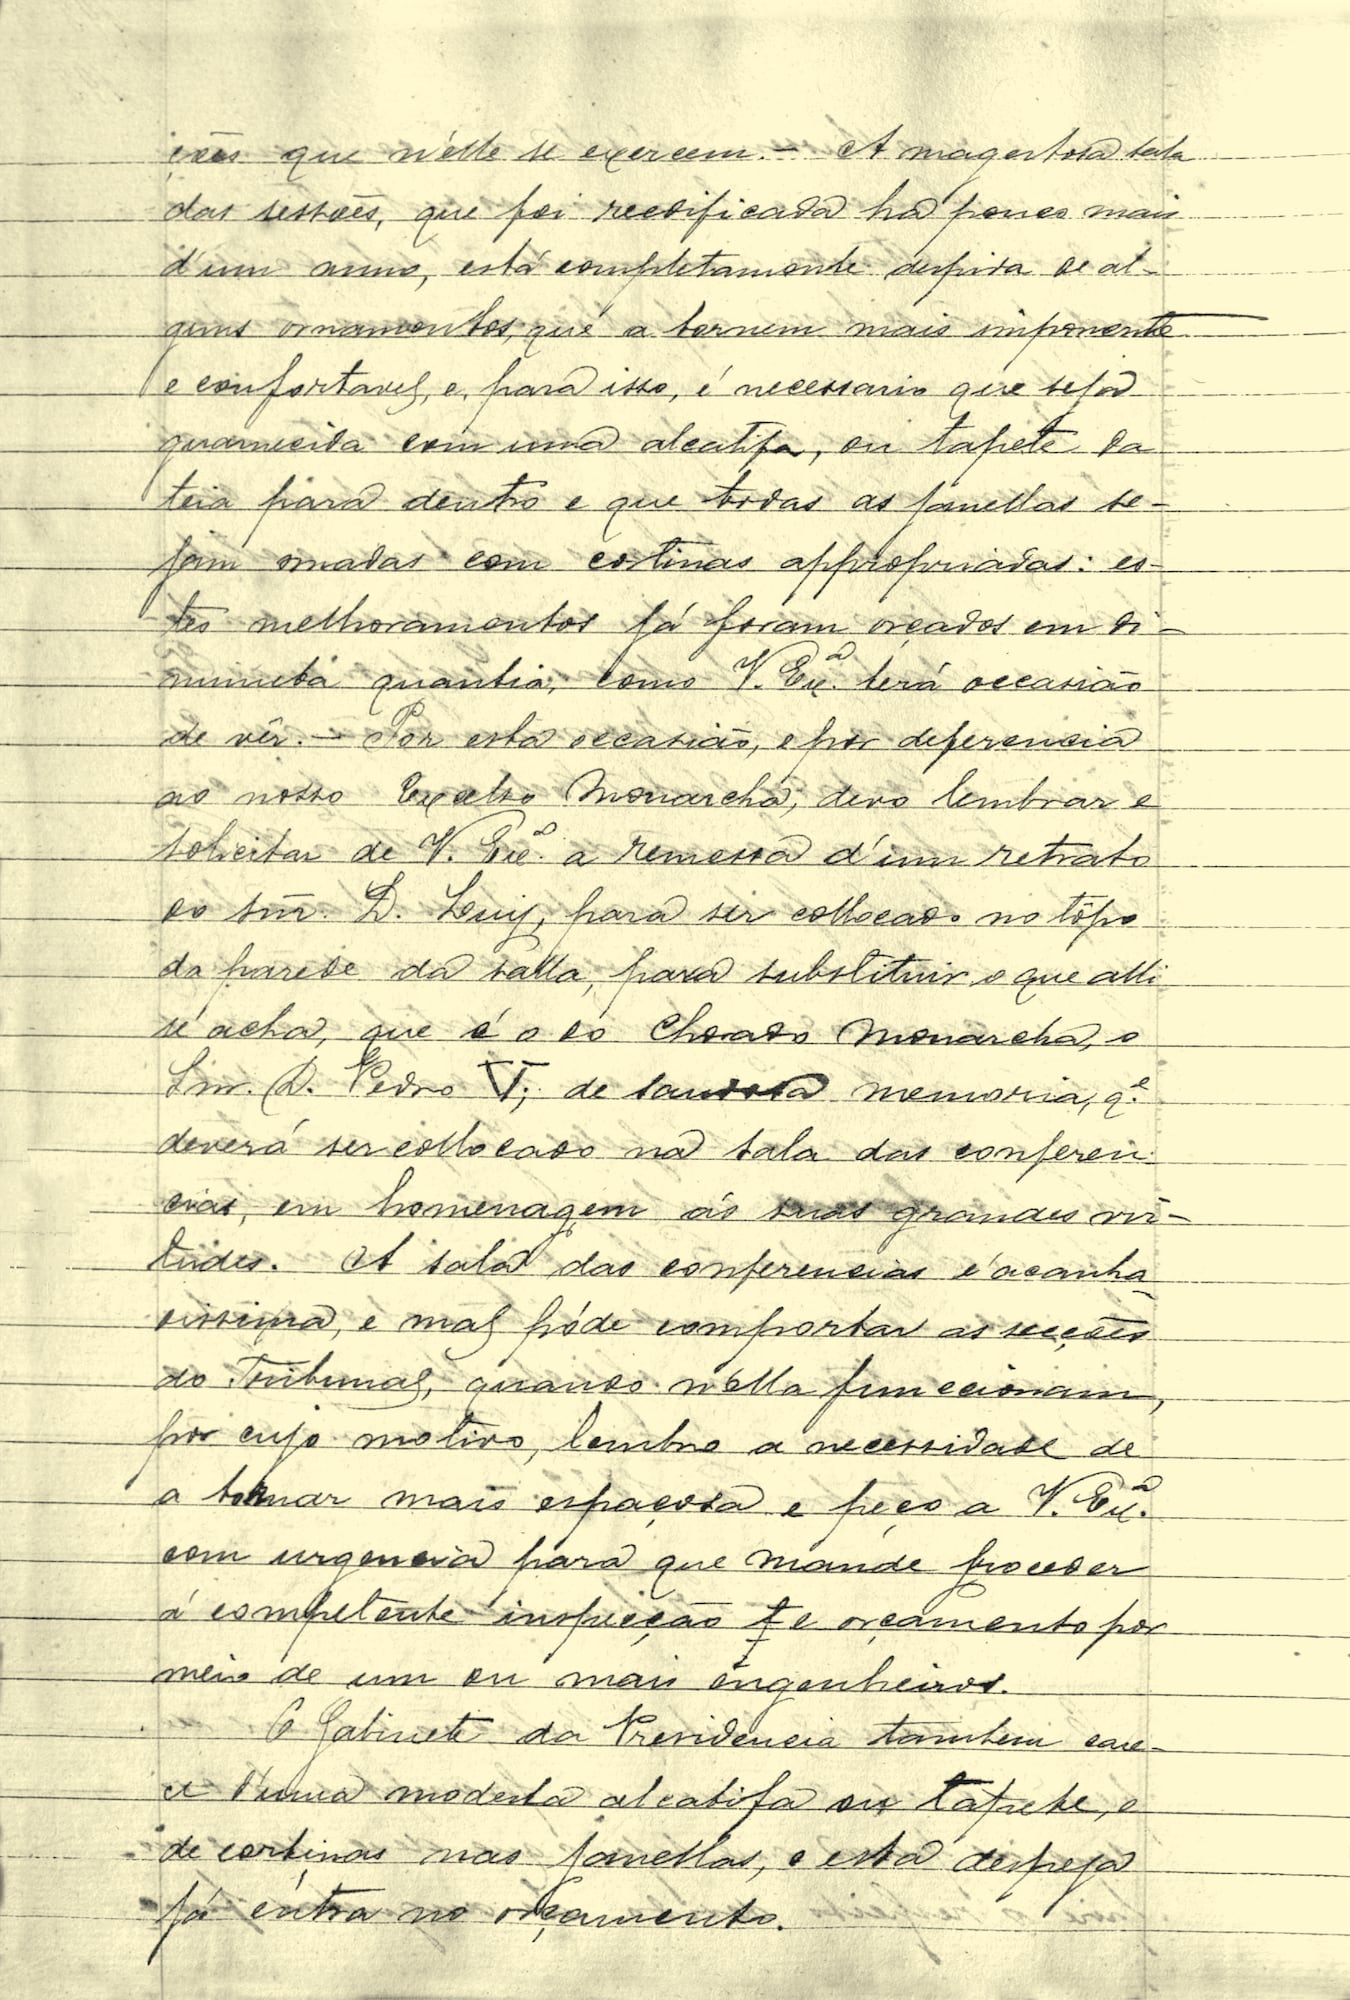 ções que n'elle se exercem. — A magestosa sala
das sessões, que foi reedificada ha pouco mais
d'um anno, está completamente despida de al-
guns ornamentos, que a tornem mais imponente
e confortavel, e, para isso, é necessario que seja
guarnecida com uma alcatifa, ou tapete da
teia para dentro e que todas as janellas se-
jam ornadas com cortinas appropriadas: es-
tes melhoramentos já foram orçados em di-
minuta quantia, como V. Ex.ª terá occasião
de vêr. — Por esta occasião, e por deferencia
ao nosso Excelso Monarcha, devo lembrar e
solicitar de V. Ex.ª a remessa d'um retrato
do Snr. D. Luiz, para ser collocado no tôpo
da parede da salla, para substituir o que alli
se acha, que é o do Chorado Monarcha, o
Snr. D. Pedro V, de saudosa memoria, q.e
deverá ser collocado na sala das conferen-
cias, em homenagem ás suas grandes vir-
tudes. A sala das conferencias é acanha-
dissima, e mal póde comportar as secções
do Tribunal, quando n'ella funccionam,
por cujo motivo, lembro a necessidade de
a tornar mais espaçosa e peço a V. Ex.ª
com urgencia para que mande proceder
á competente inspecção e orçamento por
meio de um ou mais engenheiros.
O Gabinete da Presidencia tambem care-
ce d'uma modesta alcatifa ou tapete, e
de cortinas nas janellas, e esta despeza
já entra no orçamento.